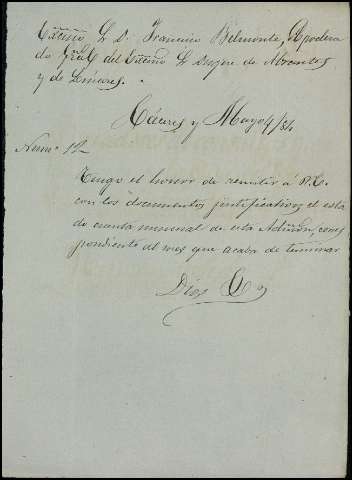 Excmo S. D. Francisco Belmonte, Apodera
do Gral del Excmo S. Duque de Abrantes
y de Linares.
Cáceres y Mayo 4/84
Num.º 12
Tengo el honor de remitir á V.E.
con los documentos justificativos el esta
do cuenta mensual de esta Admon, corres
pondiente al mes que acaba de terminar
Dios G